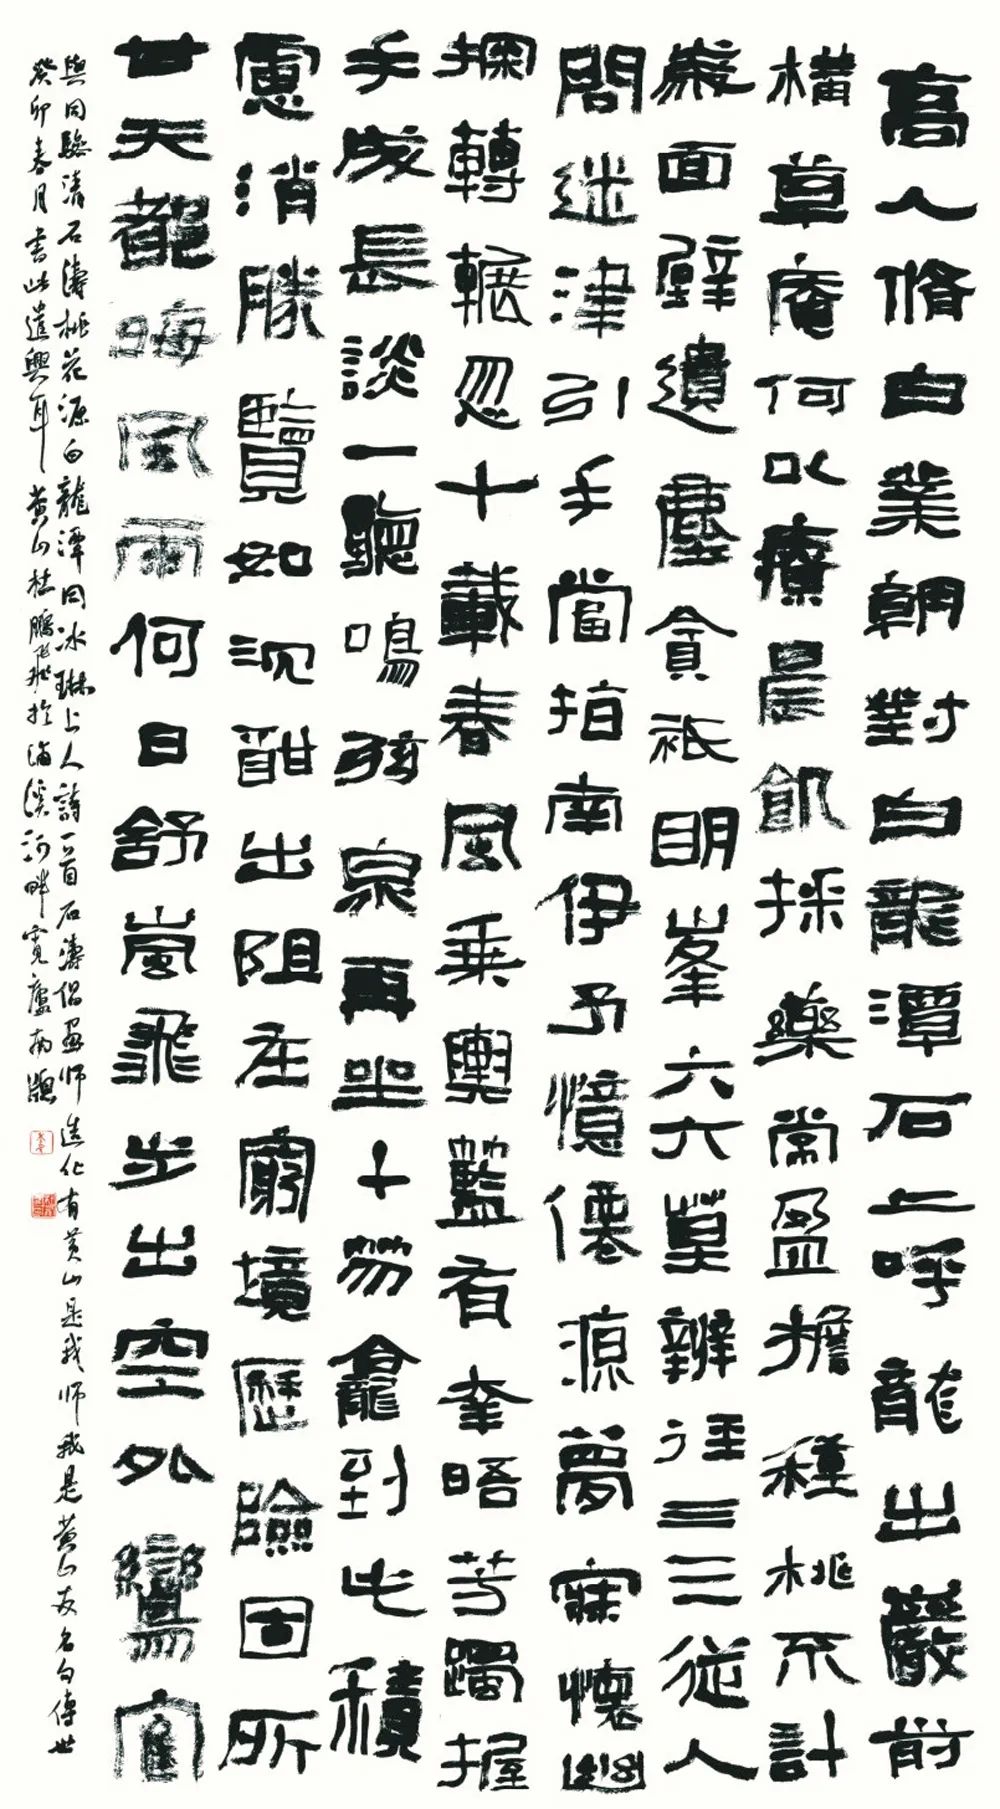 高人脩白業朝對白龍潭石上呼龍出巖前
橫草庵何以療晨飢採藥常盈擔種桃不計
歲面壁遺塵貪祇眀峯六六莫辨徑三三從人
問迷津引手當指南伊予憶僊源夢寐懷幽
探轉輾忽十載春風乘輿籃有幸晤芳躅握
手成長談一聽鳴弦泉再坐十笏龕到此積
慮消勝覽如沉酣出阻在窮境歷險固所
甘天都晦風雨何日舒嵐飛步出空外鸞寉
與同臨清石濤桃花源白龍潭同冰琳上人詩一首石濤倡畫師造化有黃山是我師我是黃山友名句傳世
癸卯春月書此遣興耳黃山杜鵬飛於浦溪河畔寬廬南牕